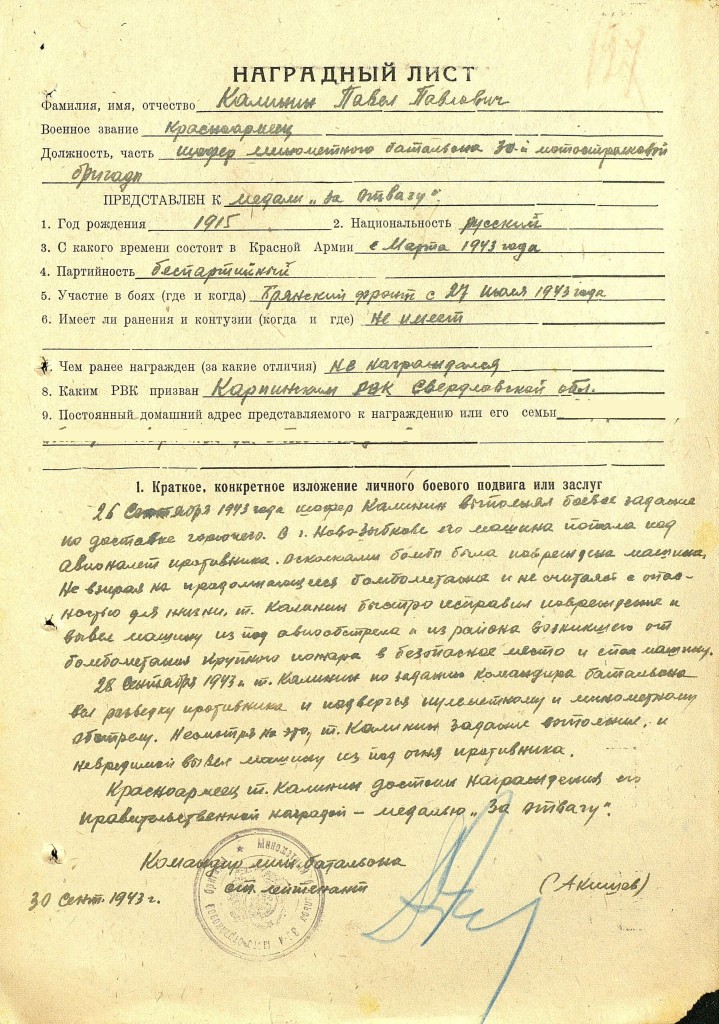 127
НАГРАДНЫЙ ЛИСТ
Фамилия, имя, отчество Калинин Павел Павлович
Военное звание Красноармеец
Должность, часть шофер минометного батальона 30-й мотострелковой
бригады
ПРЕДСТАВЛЕН К медали „За отвагу".
1. Год рождения 1915 2. Национальность русский
3. С какого времени состоит в Красной Армии с Марта 1943 года
4. Партийность беспартийный
5. Участие в боях (где и когда) Брянский фронт с 27 июля 1943 года
6. Имеет ли ранения и контузии (когда и где) не имеет
7. Чем ранее награжден (за какие отличия) не награждался
8. Каким РВК призван Карпинским РВК Свердловской обл.
9. Постоянный домашний адрес представляемого к награждению или его семьи
1. Краткое, конкретное изложение личного боевого подвига или заслуг
26 Сентября 1943 года шофер Калинин выполнял боевое задание
по доставке горючего. В г. Новозыбкове его машина попала под
авионалет противника. Осколками бомбы была повреждена машина.
Не взирая на продолжающееся бомбометание и не считаясь с опас-
ностью для жизни, т. Калинин быстро исправил повреждение и
вывел машину из под авиообстрела и из района возникшего от
бомбометания крупного пожара в безопасное место и спас машину.
28 Сентября 1943 г. т. Калинин по заданию командира батальона
вел разведку противника и подвергся пулеметному и минометному
обстрелу. Несмотря на это, т. Калинин задание выполнил, и
невредимой вывел машину из под огня противника.
Красноармеец т. Калинин достоин награждения его
правительственной наградой – медалью „За отвагу".
Командир мин. батальона
ст. лейтенант (Акишев)
30 Сент. 1943 г.